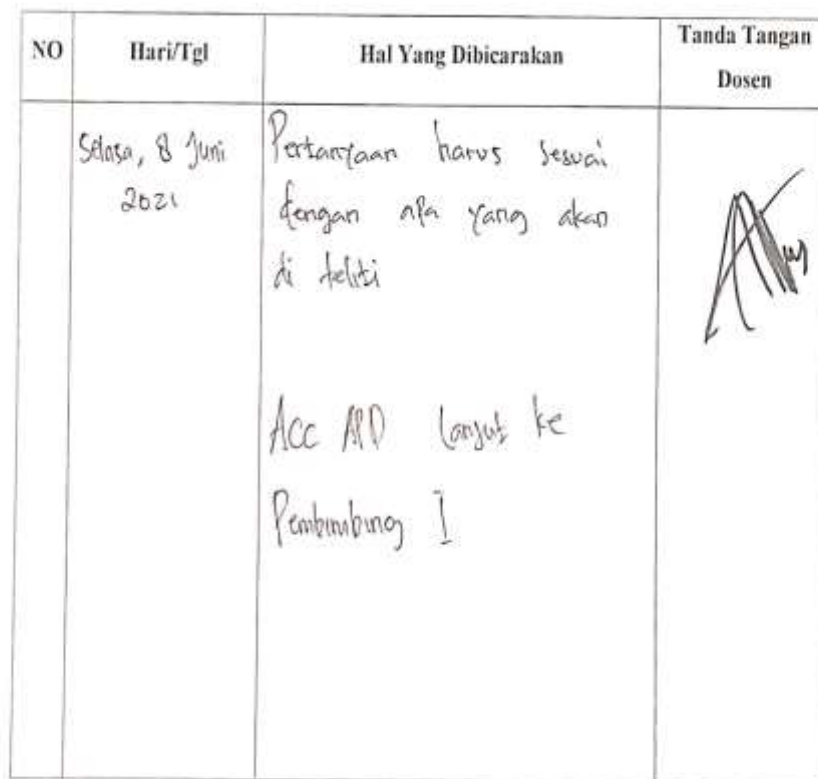 NO Hari/Tgl Hal Yang Dibicarakan Tanda Tangan
Dosen
Selasa, 8 Juni
2021
Pertanyaan harus sesuai
dengan apa yang akan
di teliti
Acc APD lanjut ke
Pembimbing I